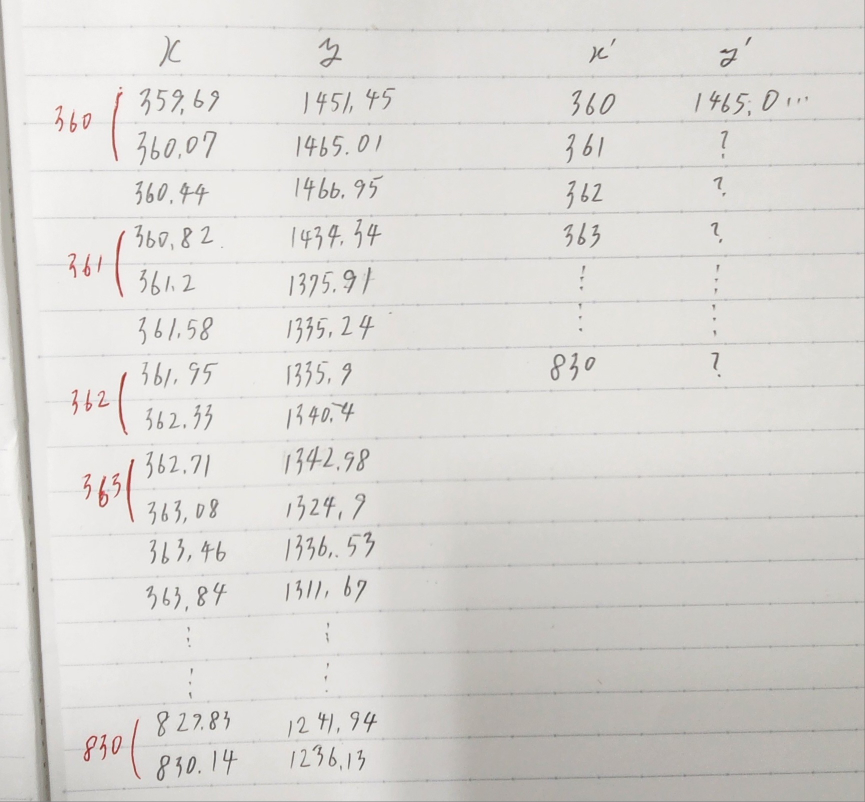 x y x′ y′
360 359,69 1451,45 360 1465,0...
360,07 1465.01 361 ?
360,44 1466,95 362 ?
361 360,82 1434,34 363 ?
361,2 1375,91 ⋮ ⋮
361,58 1335,24 ⋮ ⋮
362 361,95 1335,9 830 ?
362,33 1340,4
363 362,71 1342,98
363,08 1324,9
363,46 1336,53
363,84 1311,67
⋮ ⋮
⋮ ⋮
830 829.83 1241,94
830.14 1236,13